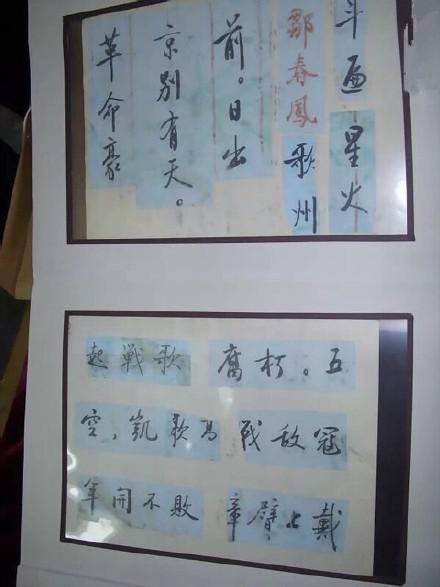 斗遍星火
鄒春鳳歌州
前。日出
京别有天。
革命豪
起戰歌 腐朽。五
空，凱歌高 战敌冠
年開不敗 章臂上戴